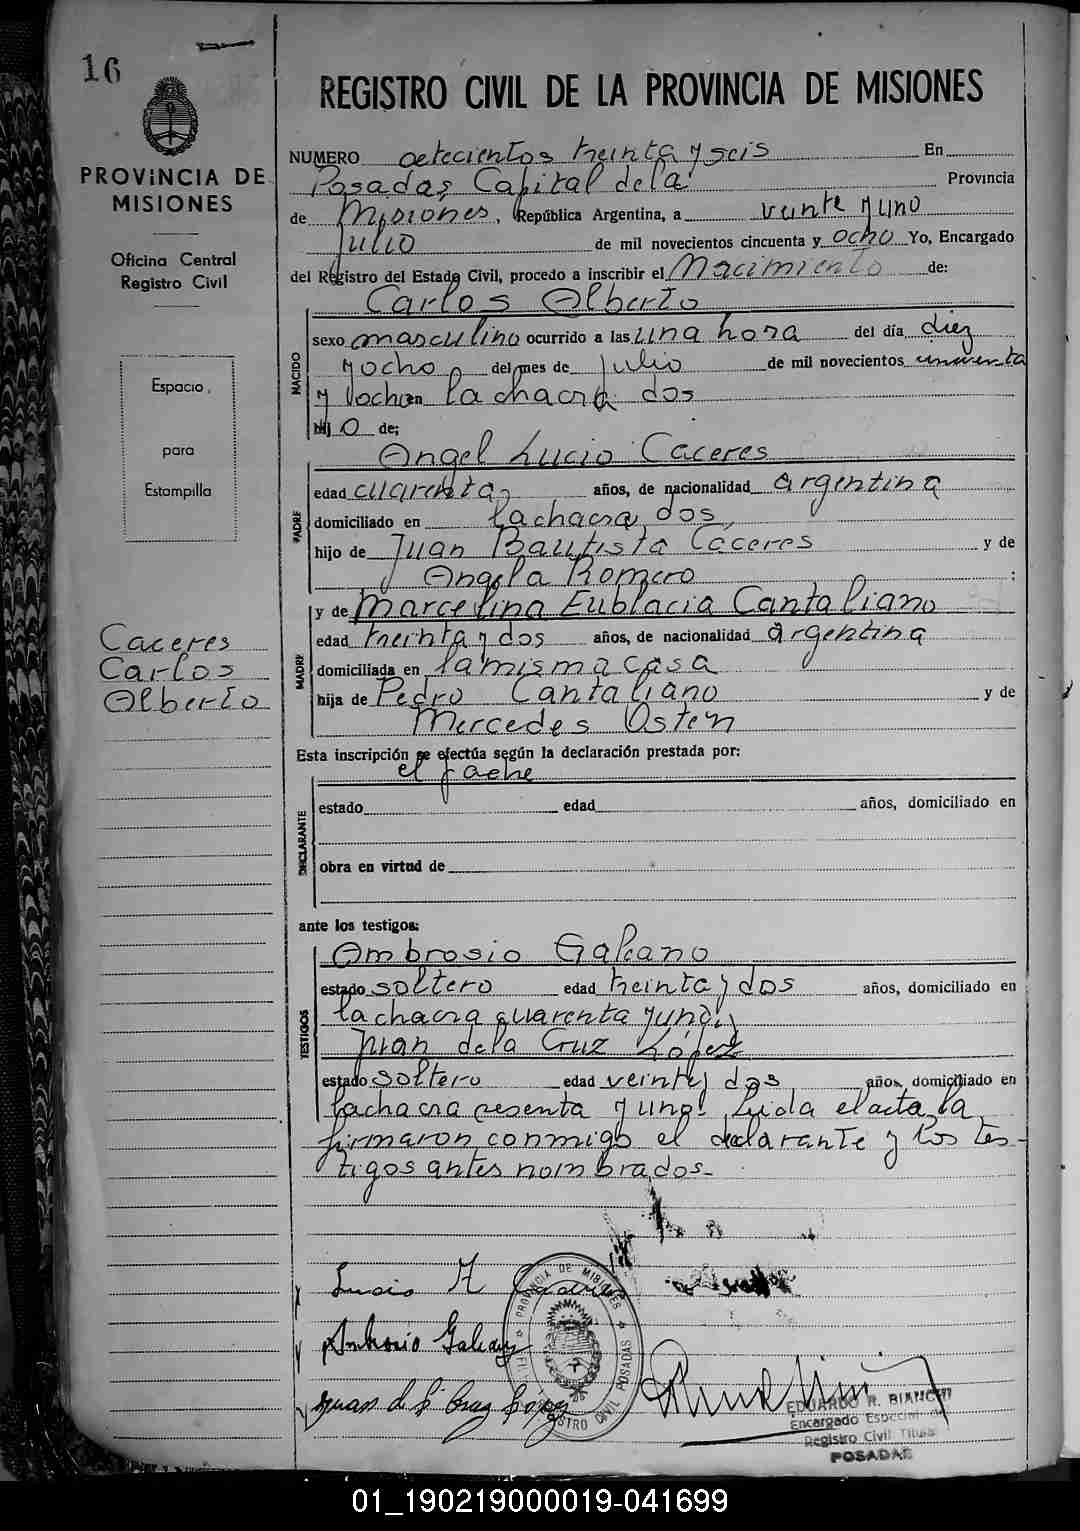 16
PROVINCIA DE
MISIONES
Oficina Central
Registro Civil
Espacio
para
Estampilla
Caceres
Carlos
Alberto
REGISTRO CIVIL DE LA PROVINCIA DE MISIONES
NUMERO setecientos treinta y seis En
Posadas, Capital dela Provincia
de Misiones, República Argentina, a veinte y uno
Julio de mil novecientos cincuenta y ocho Yo, Encargado
del Registro del Estado Civil, procedo a inscribir el Nacimiento de:
Carlos Alberto
NACIDO
sexo masculino ocurrido a las una hora del día diez
y ocho del mes de Julio de mil novecientos cincuenta
y ocho en la chacra dos
hijo de;
PADRE
Angel Lucio Caceres
edad cuarenta años, de nacionalidad argentina
domiciliado en la chacra dos,
hijo de Juan Bautista Caceres y de
Angela Romero ;
MADRE
y de Marcelina Eublacia Cantaliano
edad treinta y dos años, de nacionalidad argentina
domiciliada en la misma casa
hija de Pedro Cantaliano y de
Mercedes Ostein
Esta inscripción se efectúa según la declaración prestada por:
el padre
DECLARANTE
estado edad años, domiciliado en
obra en virtud de
ante los testigos:
TESTIGOS
Ambrosio Galeano
estado soltero edad treinta y dos años, domiciliado en
la chacra cuarenta y uno y
Juan dela Cruz López
estado soltero edad veinte y dos años, domiciliado en
la chacra sesenta y uno. Leida el acta, la
firmaron conmigo el declarante y los tes-
tigos antes nombrados.-
Lucio A Caceres
Ambrosio Galeano
Juan d l Cruz López
PROVINCIA DE MISIONES
REGISTRO CIVIL POSADAS
EDUARDO R. BIANCHI
Encargado Especial
Registro Civil Titular
POSADAS
01_190219000019-041699